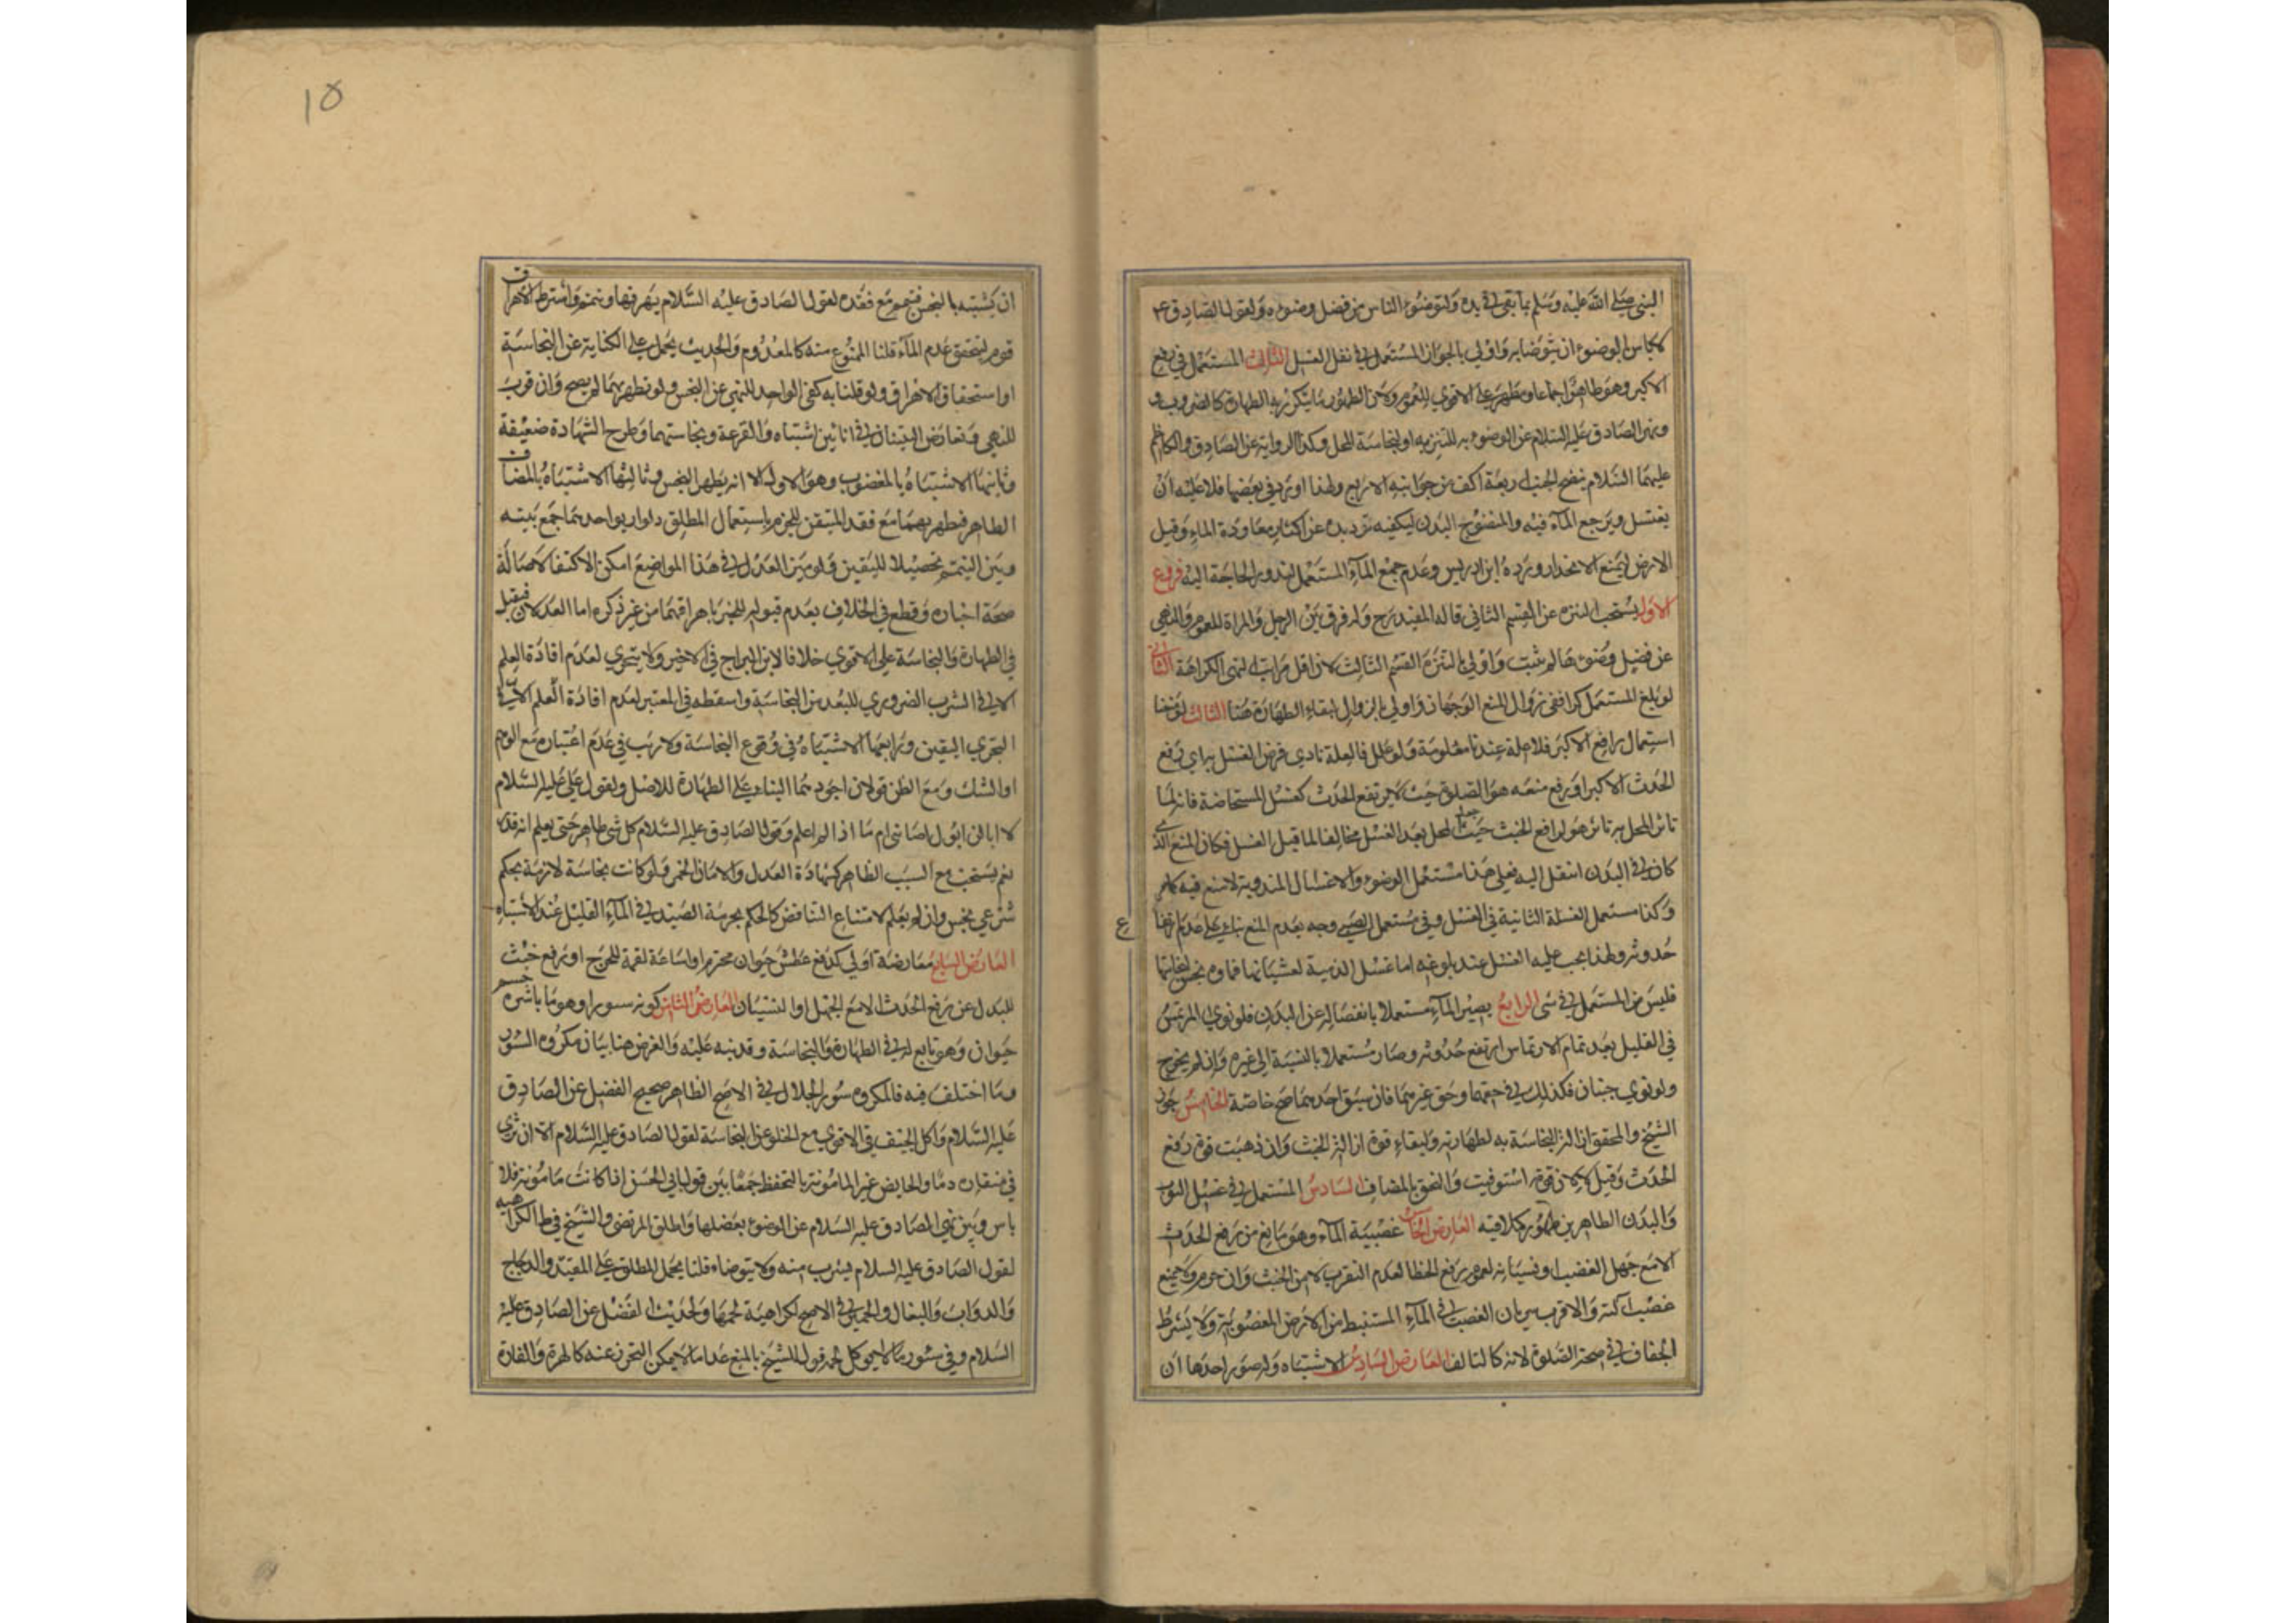 النبي صلى الله عليه وسلم بما بقي في يده ولتوضوء الناس من فضل وضوئه ولقول الصادق ع
لا باس بالوضوء ان يتوضا به واولى بالجواز المستعمل في نفل الغسل الثالث المستعمل في رفع
الاكبر وهو طاهر اجماعا ومطهر على الاقوى للعموم ولان الطهور ما يتكرر به الطهارة كالضروب
ونهى الصادق عليه السلام عن الوضوء به للتنزيه او لنجاسة المحل وكذا الرواية عن الصادق والكاظم
عليهما السلام بنضح الجنب اربعة اكف من جوانبه الاربع ولهذا او ترد في بعضها فلا عليه ان
يغتسل ويرجع الماء فيه والمنضوح البدن ليكفيه ترديده عن اكثار معاودة الماء وقيل
الارض ليمنع الانحدار ورده ابن ادريس وعدم جمع الماء المستعمل لندور الحاجة اليه فروع
الاول يستحب التنزه عن القسم الثاني قاله المفيد رح وله فرق بين الرجل والمراة للعموم والنهي
عن فضل وضوءها لم يثبت واولى بالتنزه القسم الثالث لان اقل مراتب النهي الكراهة الثاني
لو بلغ المستعمل كرا ففي زوال المنع الوجهان واولى بالزوال لبقاء الطهارة هنا الثالث لو منعنا
استعمال رافع الاكبر فلا علة عندنا معلومة ولو علل فالعلة تادي فرض الغسل به اي رفع
الحدث الاكبر او رفع منعه هو الصلوة حيث لا يرتفع الحدث كغسل المستحاضة فانه لما
تاثر المحل به تاثر هو لرافع الخبث حيث جعل المحل بعد الغسل مخالفا لما قبل الغسل فكان المنع الذي
كان في البدن انتقل اليه فعلى هذا مستعمل الوضوء والاغسال المندوبة لا منع فيه كما مر
وكذا مستعمل الغسلة الثانية في الغسل وفي مستعمل الصبي وجه بعدم المنع بناء على عدم ارتفاع
حدوثه ولهذا يجب عليه الغسل عند بلوغه اما غسل الذمية لغشيانها فماوه نجس لنجاستها
فليس من المستعمل في شى الرابع يصير الماء مستعملا بانفصاله عن البدن فلو نوى المرتمس
في القليل بعد تمام الارتماس ارتفع حدوثه وصار مستعملا بالنسبة الى غيره وان لم يخرج
ولو نوى جنبان فكذلك في حقهما وحق غيرهما فان سبق احدهما صح خاصة الخامس جوز
الشيخ والمحقق ازالة النجاسة به لطهارته ولبقاء قوة ازالة الخبث وان ذهبت قوة رفع
الحدث وقيل لا لان قوته استوفيت والحق بالمضاف السادس المستعمل في غسل الثوب
والبدن الطاهرين طهور كملاقيه العارض الخامس غصبية الماء وهو مانع من رفع الحدث
الا مع جهل الغصب او نسيانه لعموم رفع الخطا لعدم التقرب لا من الخبث وان حرم ولا يمنع
غصب آلته والاقرب سريان الغصب في الماء المستنبط من الارض المغصوبة ولا يشترط
الجفاف في صحة الصلوة لانه كالتالف العارض السادس الاشتباه وله صور احدها ان
ع
١٥
ان يشتبه بالنجس فتيمم مع فقده لقول الصادق عليه السلام يهريقهما ويتيمم واشترط الاهراق
قوم ليتحقق عدم الماء قلنا الممنوع منه كالمعدوم والحديث يحمل على الكناية عن النجاسة
او استحقاق الاهراق ولو قلنا به كفى الواحد للتميز عن النجس ولو تطهر بهما لم يصح وان قرب
للنهي وتعارض البينتان في اناثين اشتباه والقرعة ونجاستهما وطرح الشهادة ضعيفة
وثانيها الاشتباه بالمغصوب وهو كالاول الا انه يطهر النجس وثالثها الاشتباه بالمضاف
الطاهر فيطهر بهما مع فقد المتيقن للجزم باستعمال المطلق ولو اريق احدهما جمع بينه
وبين التيمم تحصيلا لليقين ولو ميز العدل في هذا المواضع امكن الاكتفا لاصالة
صحة اخباره وقطع في الخلاف بعدم قبوله للخبر باهراقهما من غير ذكره اما العدلان فيقبل
في الطهارة والنجاسة على الاقوى خلافا لابن البراج في الاخير ولا يتحرى لعدم افادة العلم
الا في الشرب الضروري للبعد من النجاسة واسقطه في المعتبر لعدم افادة العلم الا في
التحري اليقين ورابعها الاشتباه في وقوع النجاسة ولا ريب في عدم اعتباره مع الوهم
او الشك ومع الظن قولان اجودهما البناء على الطهارة للاصل ولقول علي عليه السلام
لا ابالي ابول اصابني ام ما اذا لم اعلم وقول الصادق عليه السلام كل شى طاهر حتى يعلم انه قذر
نعم يستحب مع السبب الظاهر كشهادة العدل وادمان الخمر ولو كانت نجاسة لازمة بحكم
شرعي نجس وان لم يعلم لامتناع التناقض كالحكم بحرمة الصيد في الماء القليل عند الاشتباه
العارض السابع معارضة اولى كدفع عطش حيوان محترم او اساغة لقمة للحرج او رفع خبث
للبدل عن رفع الحدث الا مع الجهل او النسيان العارض الثامن كونه سورا وهو ما باشره جسم
حيوان وهو تابع له في الطهارة والنجاسة وقد نبه عليه والغرض هنا بيان مكروه السور
وما اختلف فيه فالمكروه سور الجلال في الاصح الظاهر صحيح الفضل عن الصادق
عليه السلام واكل الجيف في الاقوى مع الخلو عن النجاسة لقول الصادق عليه السلام الا ان ترى
في منقاره دما والحايض غير المامونة بالتحفظ جمعا بين قول ابي الحسن اذا كانت مامونة فلا
باس وبين نهي الصادق عليه السلام عن الوضوء بفضلها واطلق المرتضى والشيخ في ط الكراهية
لقول الصادق عليه السلام يشرب منه ولا يتوضاء قلنا يحمل المطلق على المقيد والدجاج
والدواب والبغال والحمير في الاصح لكراهية لحمها ولحديث الفضل عن الصادق عليه
السلام وفي سور ما لا يوكل لحمه قول للشيخ بالمنع عدا ما لا يمكن التحرز عنه كالهرة والفارة